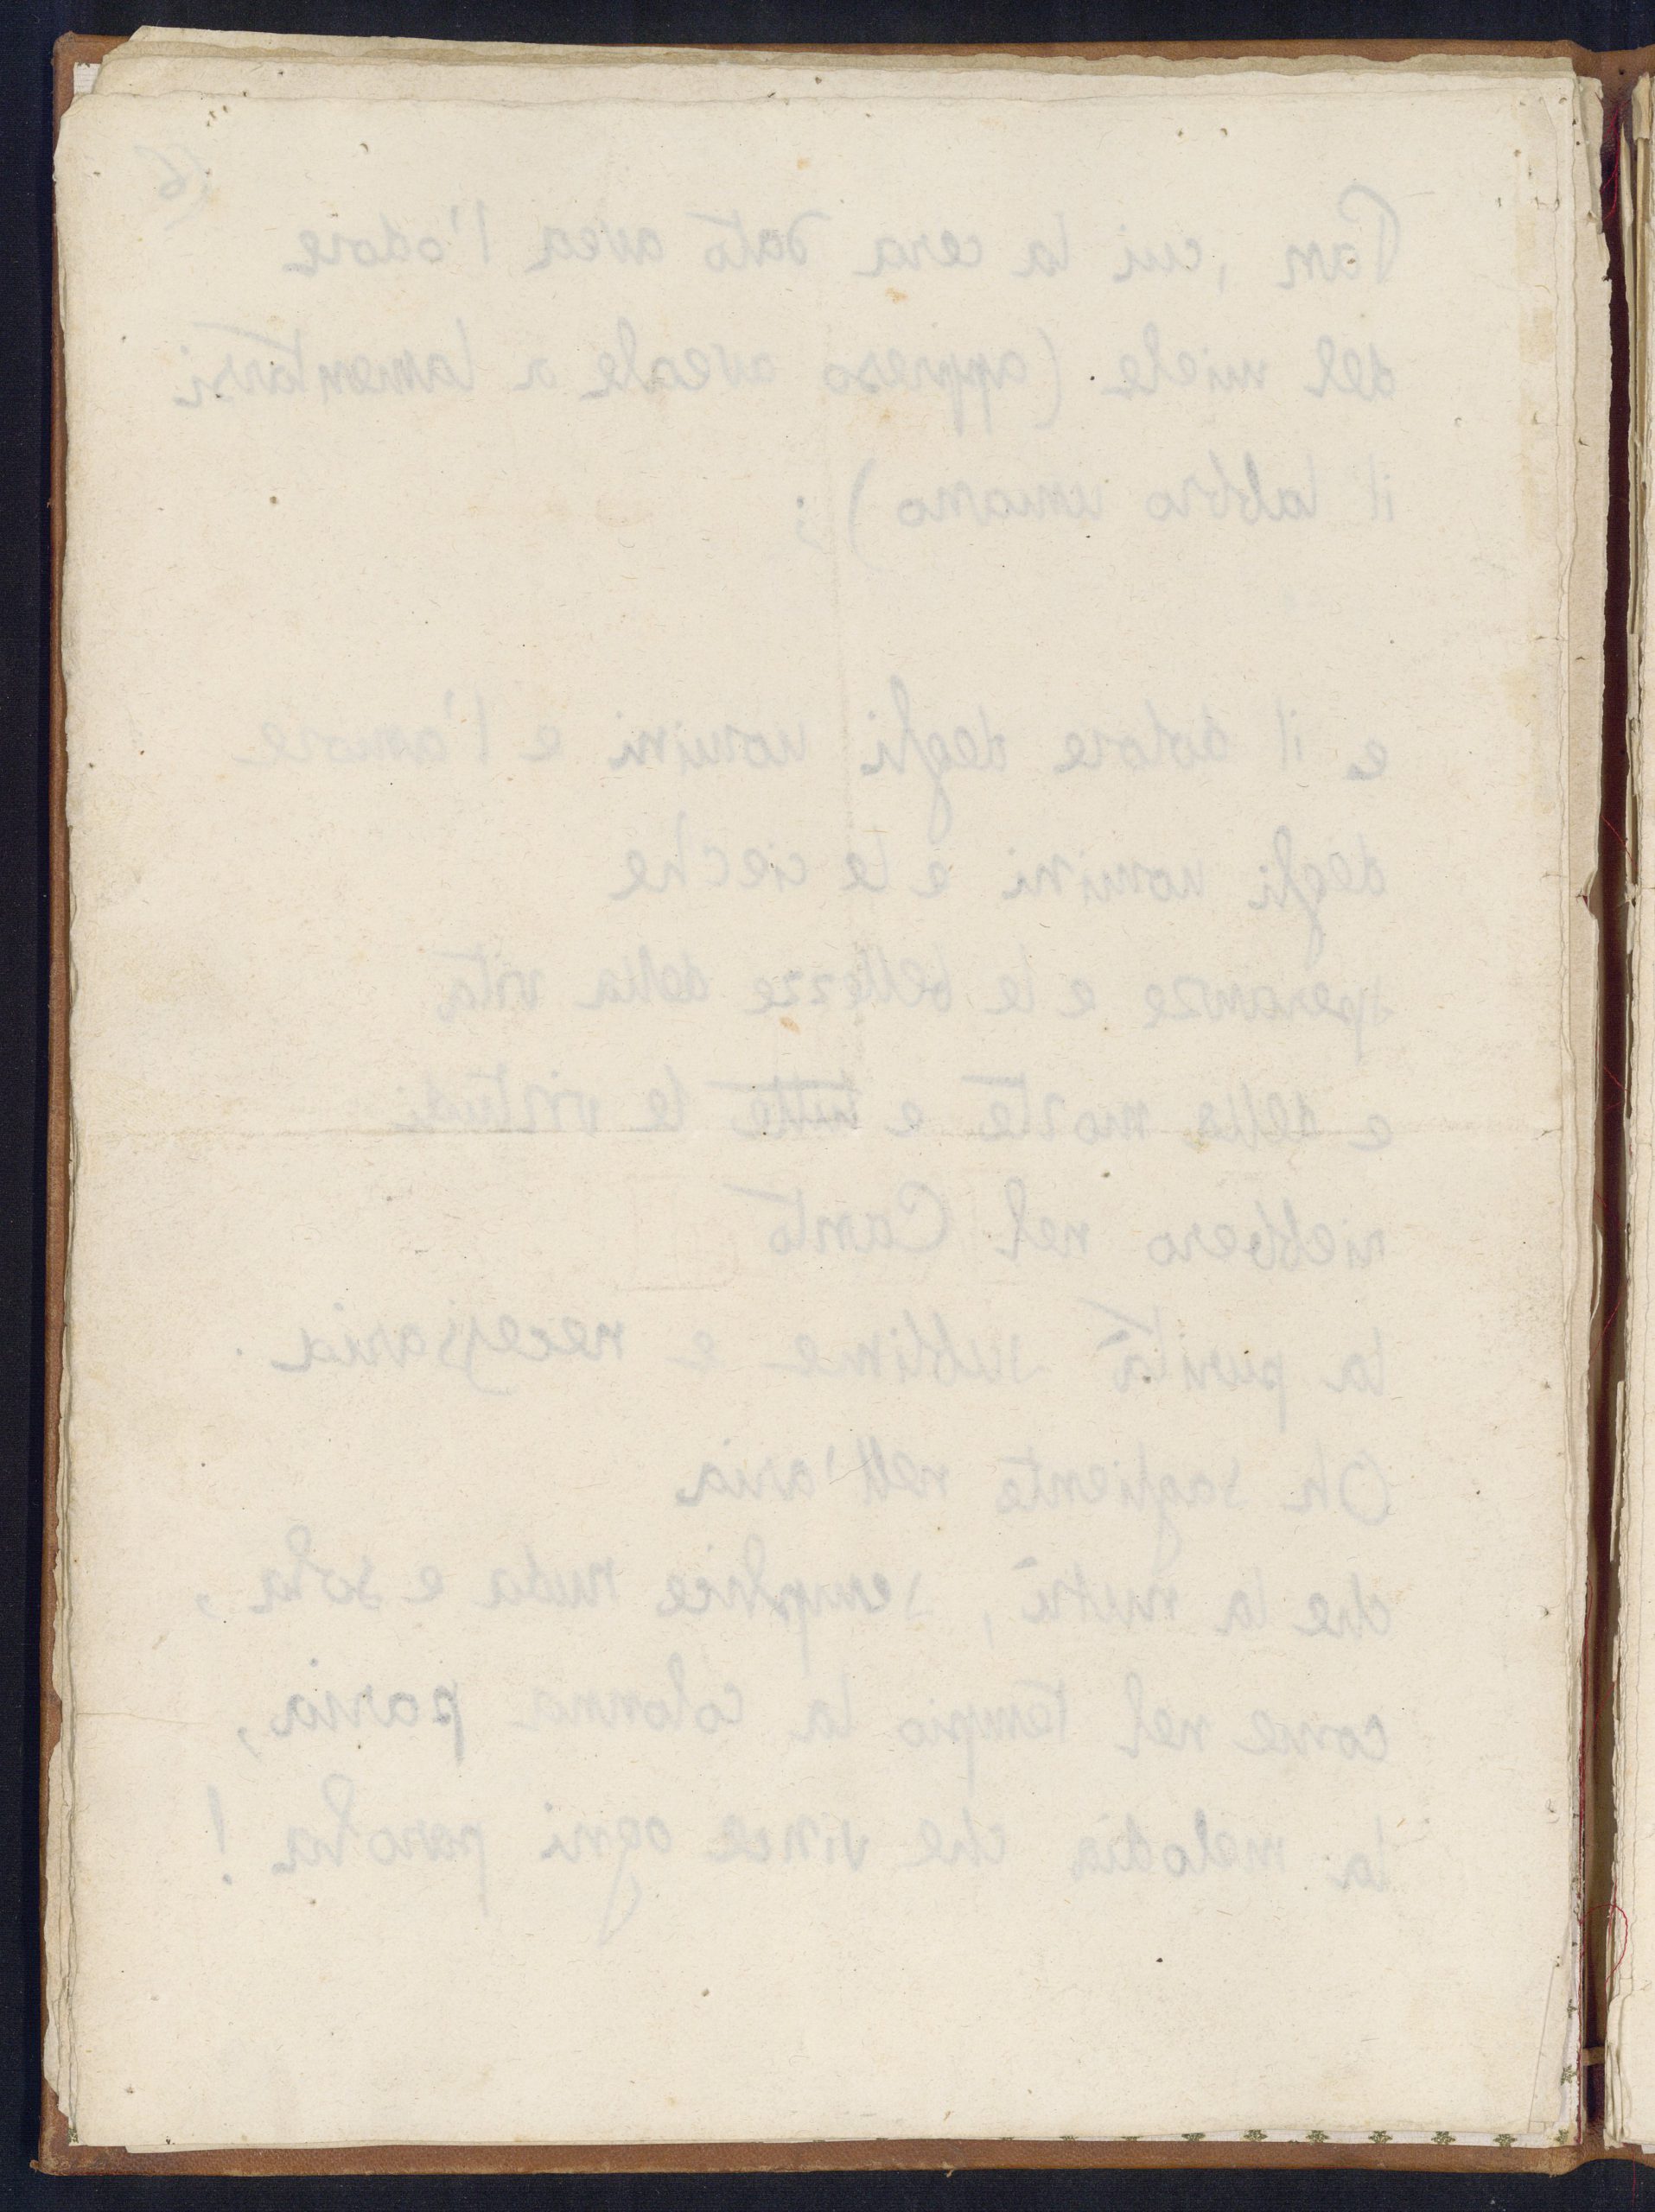 Pan, cui la cera dato avea l'odore
del miele (appreso aveale a lamentarsi
il labbro umano);
e il dolore degli uomini e l'amore
degli uomini e le cieche
speranze e le bellezze della vita
e della morte e tutte le virtudi
riebbero nel Canto
la purità sublime e necessaria.
Oh sagliente nell'aria
che la nutrì, semplice nuda e sola,
come nel tempio la colonna paria,
la melodia che vince ogni parola!